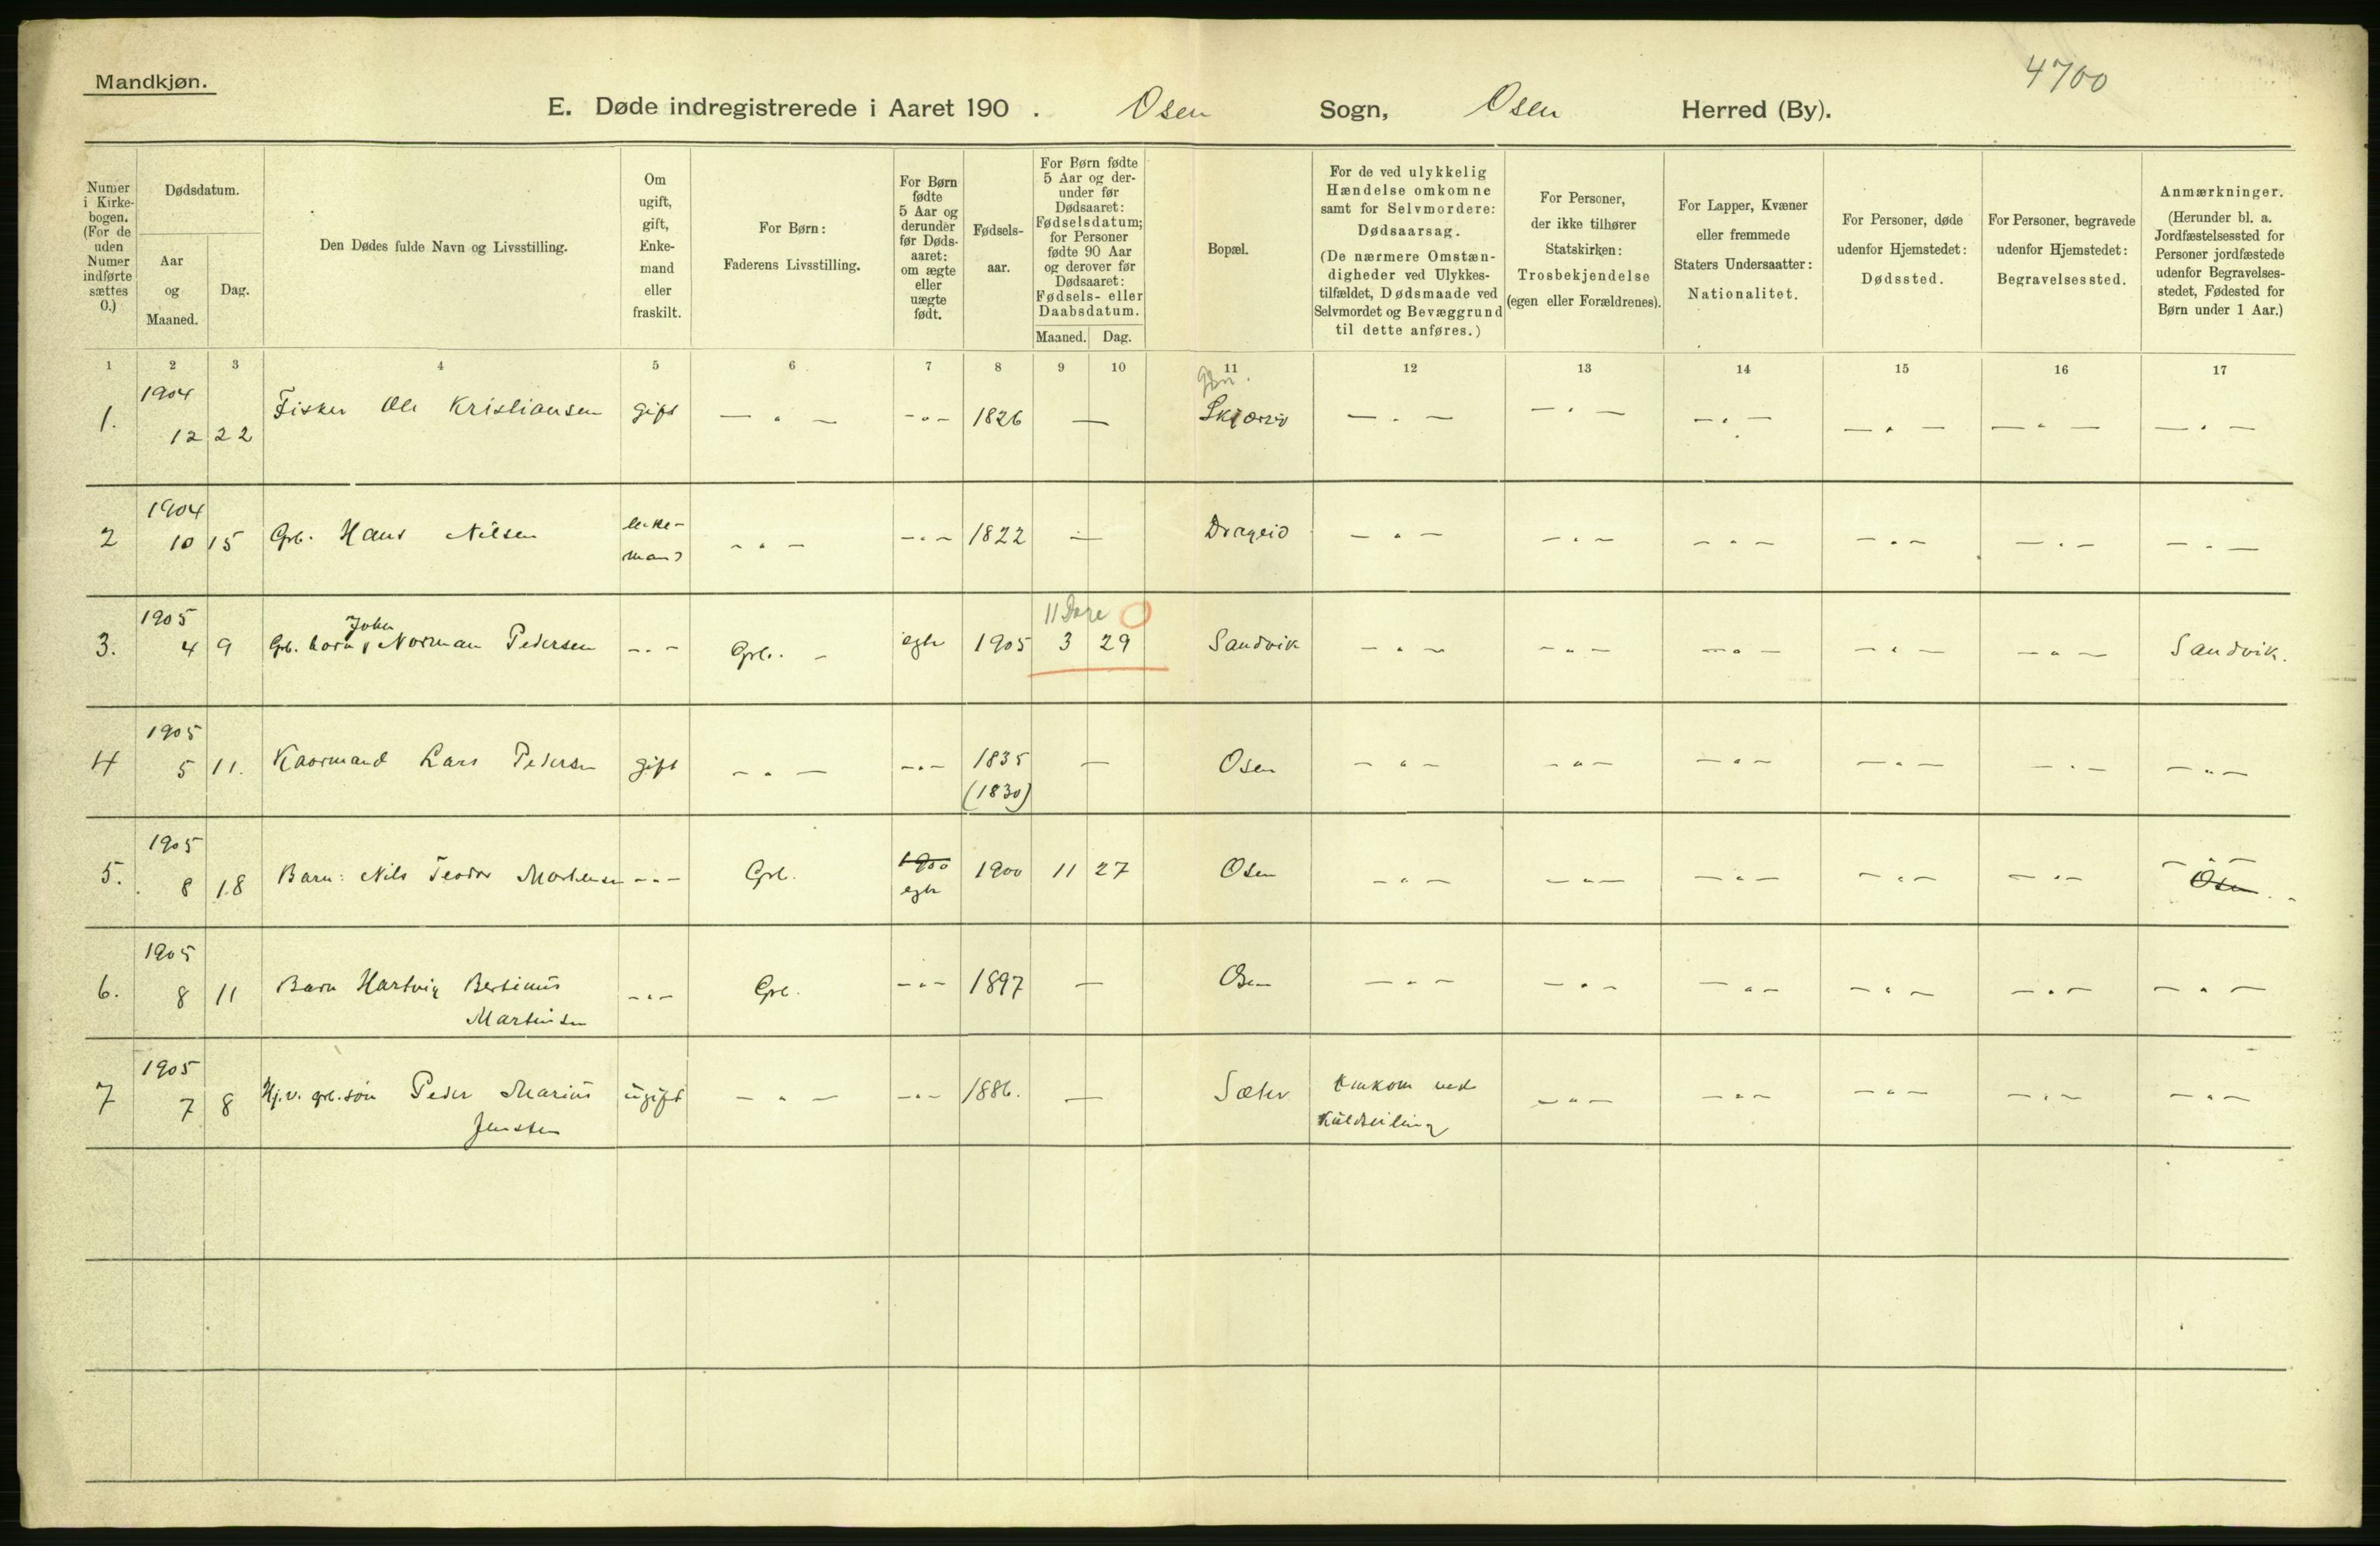 Mandkjøn.
4700
E. Døde indregistrerede i Aaret 190 . Osen Sogn, Osen Herred (By).
Numer i Kirke-bogen. (For de uden Numer indførte sættes 0.)
Dødsdatum.
Aar og Maaned.
Dag.
Den Dødes fulde Navn og Livsstilling.
Om ugift, gift, Enke-mand eller fraskilt.
For Børn: Faderens Livsstilling.
For Børn fødte 5 Aar og derunder før Døds-aaret: om ægte eller uægte født.
Fødsels-aar.
For Børn fødte 5 Aar og der-under før Dødsaaret: Fødselsdatum; for Personer fødte 90 Aar og derover før Dødsaaret: Fødsels- eller Daabsdatum.
Maaned. Dag.
Bopæl.
For de ved ulykkelig Hændelse omkomne samt for Selvmordere: Dødsaarsag. (De nærmere Omstæn-digheder ved Ulykkes-tilfældet, Dødsmaade ved Selvmordet og Bevæggrund til dette anføres.)
For Personer, der ikke tilhører Statskirken: Trosbekjendelse (egen eller Forældrenes).
For Lapper, Kvæner eller fremmede Staters Undersaatter: Nationalitet.
For Personer, døde udenfor Hjemstedet: Dødssted.
For Personer, begravede udenfor Hjemstedet: Begravelsessted.
Anmærkninger. (Herunder bl. a. Jordfæstelsessted for Personer jordfæstede udenfor Begravelses-stedet, Fødested for Børn under 1 Aar.)
1 2 3 4 5 6 7 8 9 10 11 12 13 14 15 16 17
1904
1. 12 22 Fisker Ole Kristiansen gift — " — — " — 1826 — — " — — " — — " — — " — — " — — " —
1904
2 10 15 Grb. Hans Nilsen enke- — " — — " — 1822 — Drageid — " — — " — — " — — " — — " — — " —
mand
1905 John 11 Dage
3. 4 9 Grb. barn, Norman Pedersen — " — Grb. — egte 1905 3 29 Sandvik — " — — " — — " — — " — — " — Sandvik.
1905
4 5 11. Kaarmand Lars Pedersen gift — " — — " — 1835 — Osen — " — — " — — " — — " — — " — — " —
(1830)
1905 1900 — " —
5. 8 18 Barn: Nils Teodor Mortensen — " — Grb. egte 1900 11 27 Osen — " — — " — — " — — " — — " — Osen
1905
6. 8 11 Barn Hartvig Bertinus — " — Grb. — " — 1897 — Osen — " — — " — — " — — " — — " — — " —
Martinsen
1905
7 7 8 Hj.v. grb. søn Peder Marius ugift — " — — " — 1886. — Sæter Omkom ved — " — — " — — " — — " — — " —
Jensen Kuldseiling